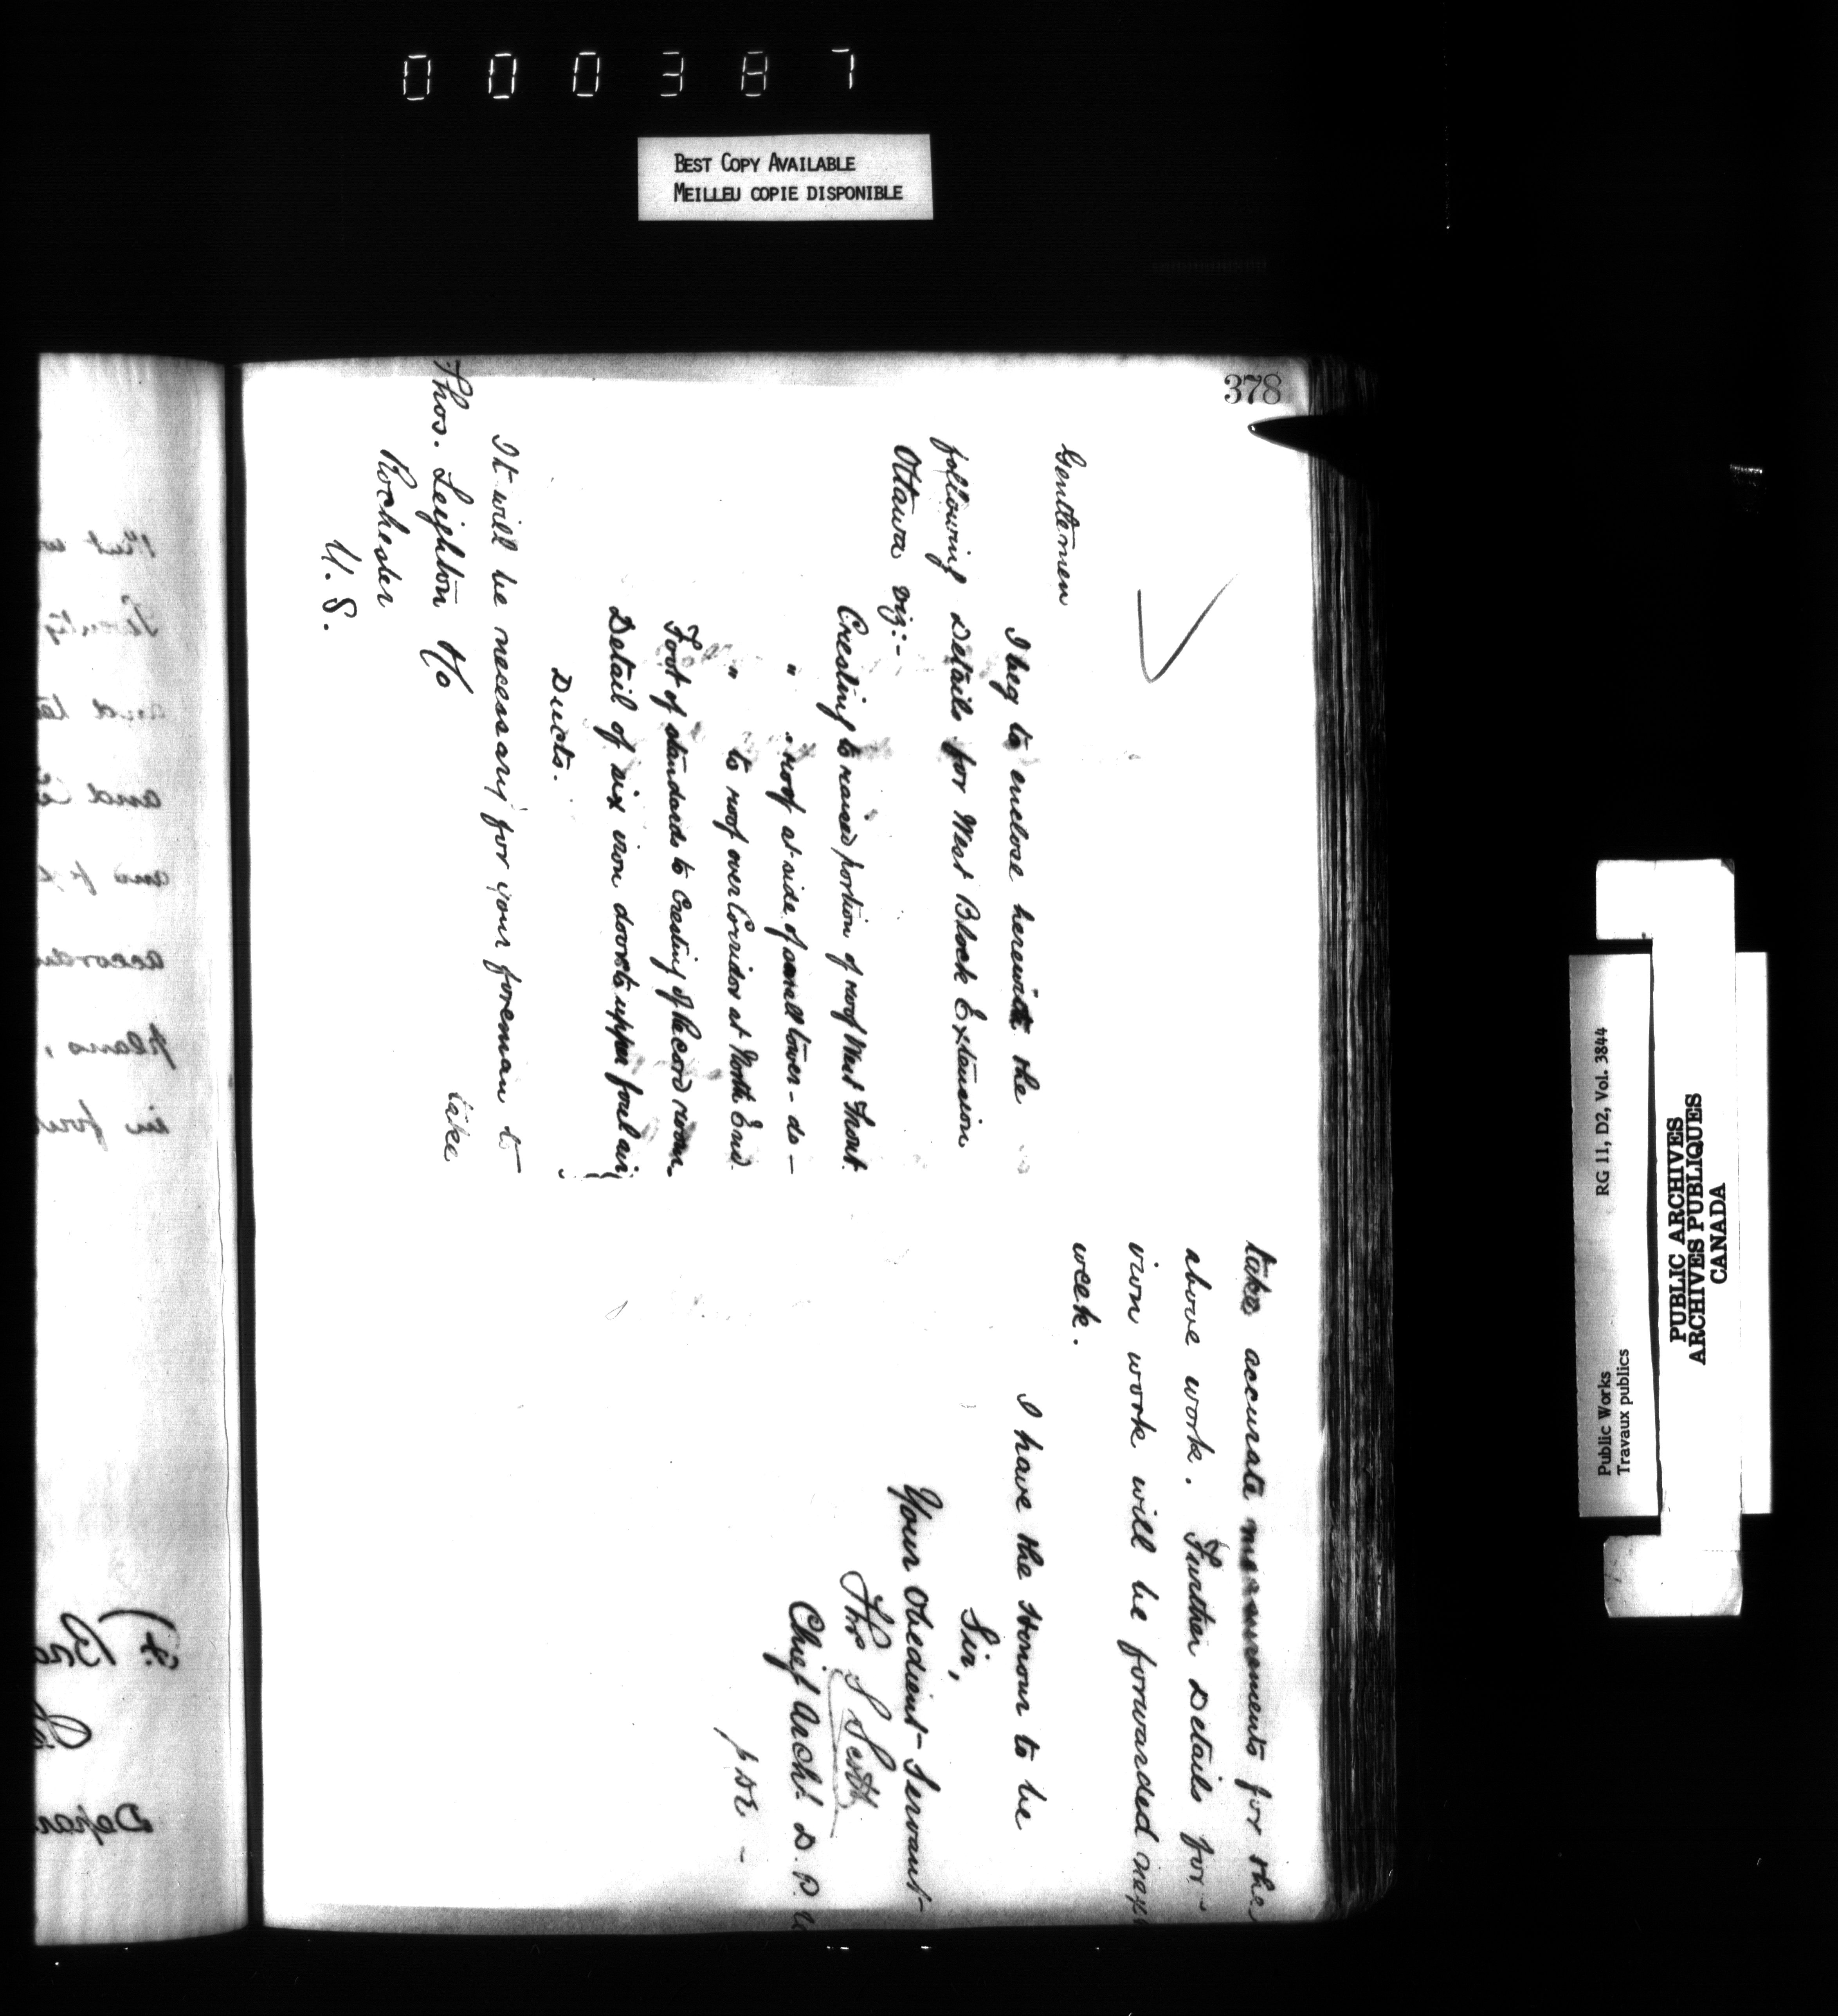 000387
BEST COPY AVAILABLE
MEILLEU COPIE DISPONIBLE
378
Gentlemen
I beg to enclose herewith the
following Details for West Block Extension
Ottawa viz:-
Cresting to raised portion of roof West Front.
" " roof at side of small tower - do -
" to roof over Corridor at North End.
Foot of standards to Cresting of Record room.
Detail of six iron doors to upper foul air
Ducts.
It will be necessary for your foreman to
take
Thos. Leighton
Rochester
U. S.
take accurate measurements for the
above work. Further Details for
iron work will be forwarded next
week.
I have the Honour to be
Sir,
Your Obedient Servant
Thos S Scott
Chief Archt. D. P. W
Public Works
Travaux publics
RG 11, D2, Vol. 3844
PUBLIC ARCHIVES
ARCHIVES PUBLIQUES
CANADA